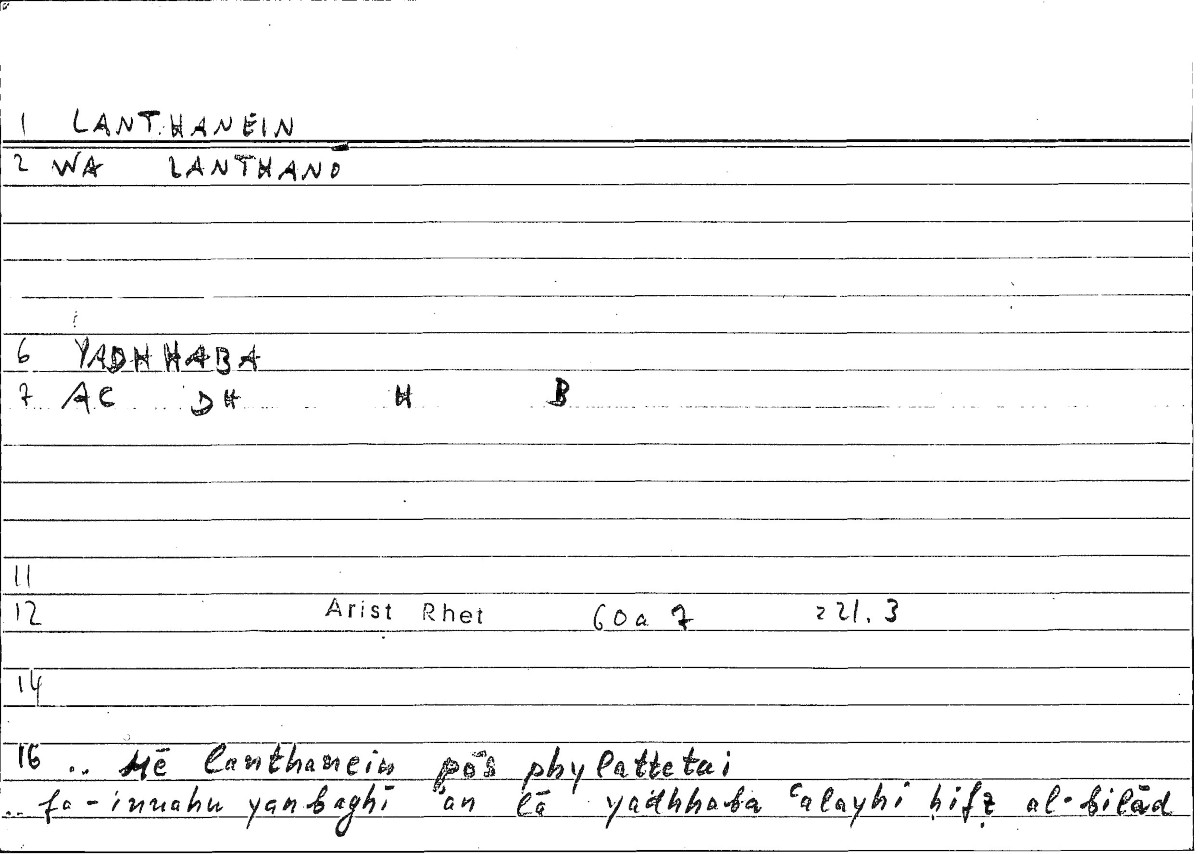 1 LANTHANEIN
2 WA LANTHANO
6 YADHHABA
7 AC DH H B
11
12 Arist Rhet 60a7 221.3
14
16 .. Mē lanthanein pōs phylattetai
.. fa-innahu yanbaghī ʾan lā yadhhaba ʿalayhi ḥifẓ al-bilād